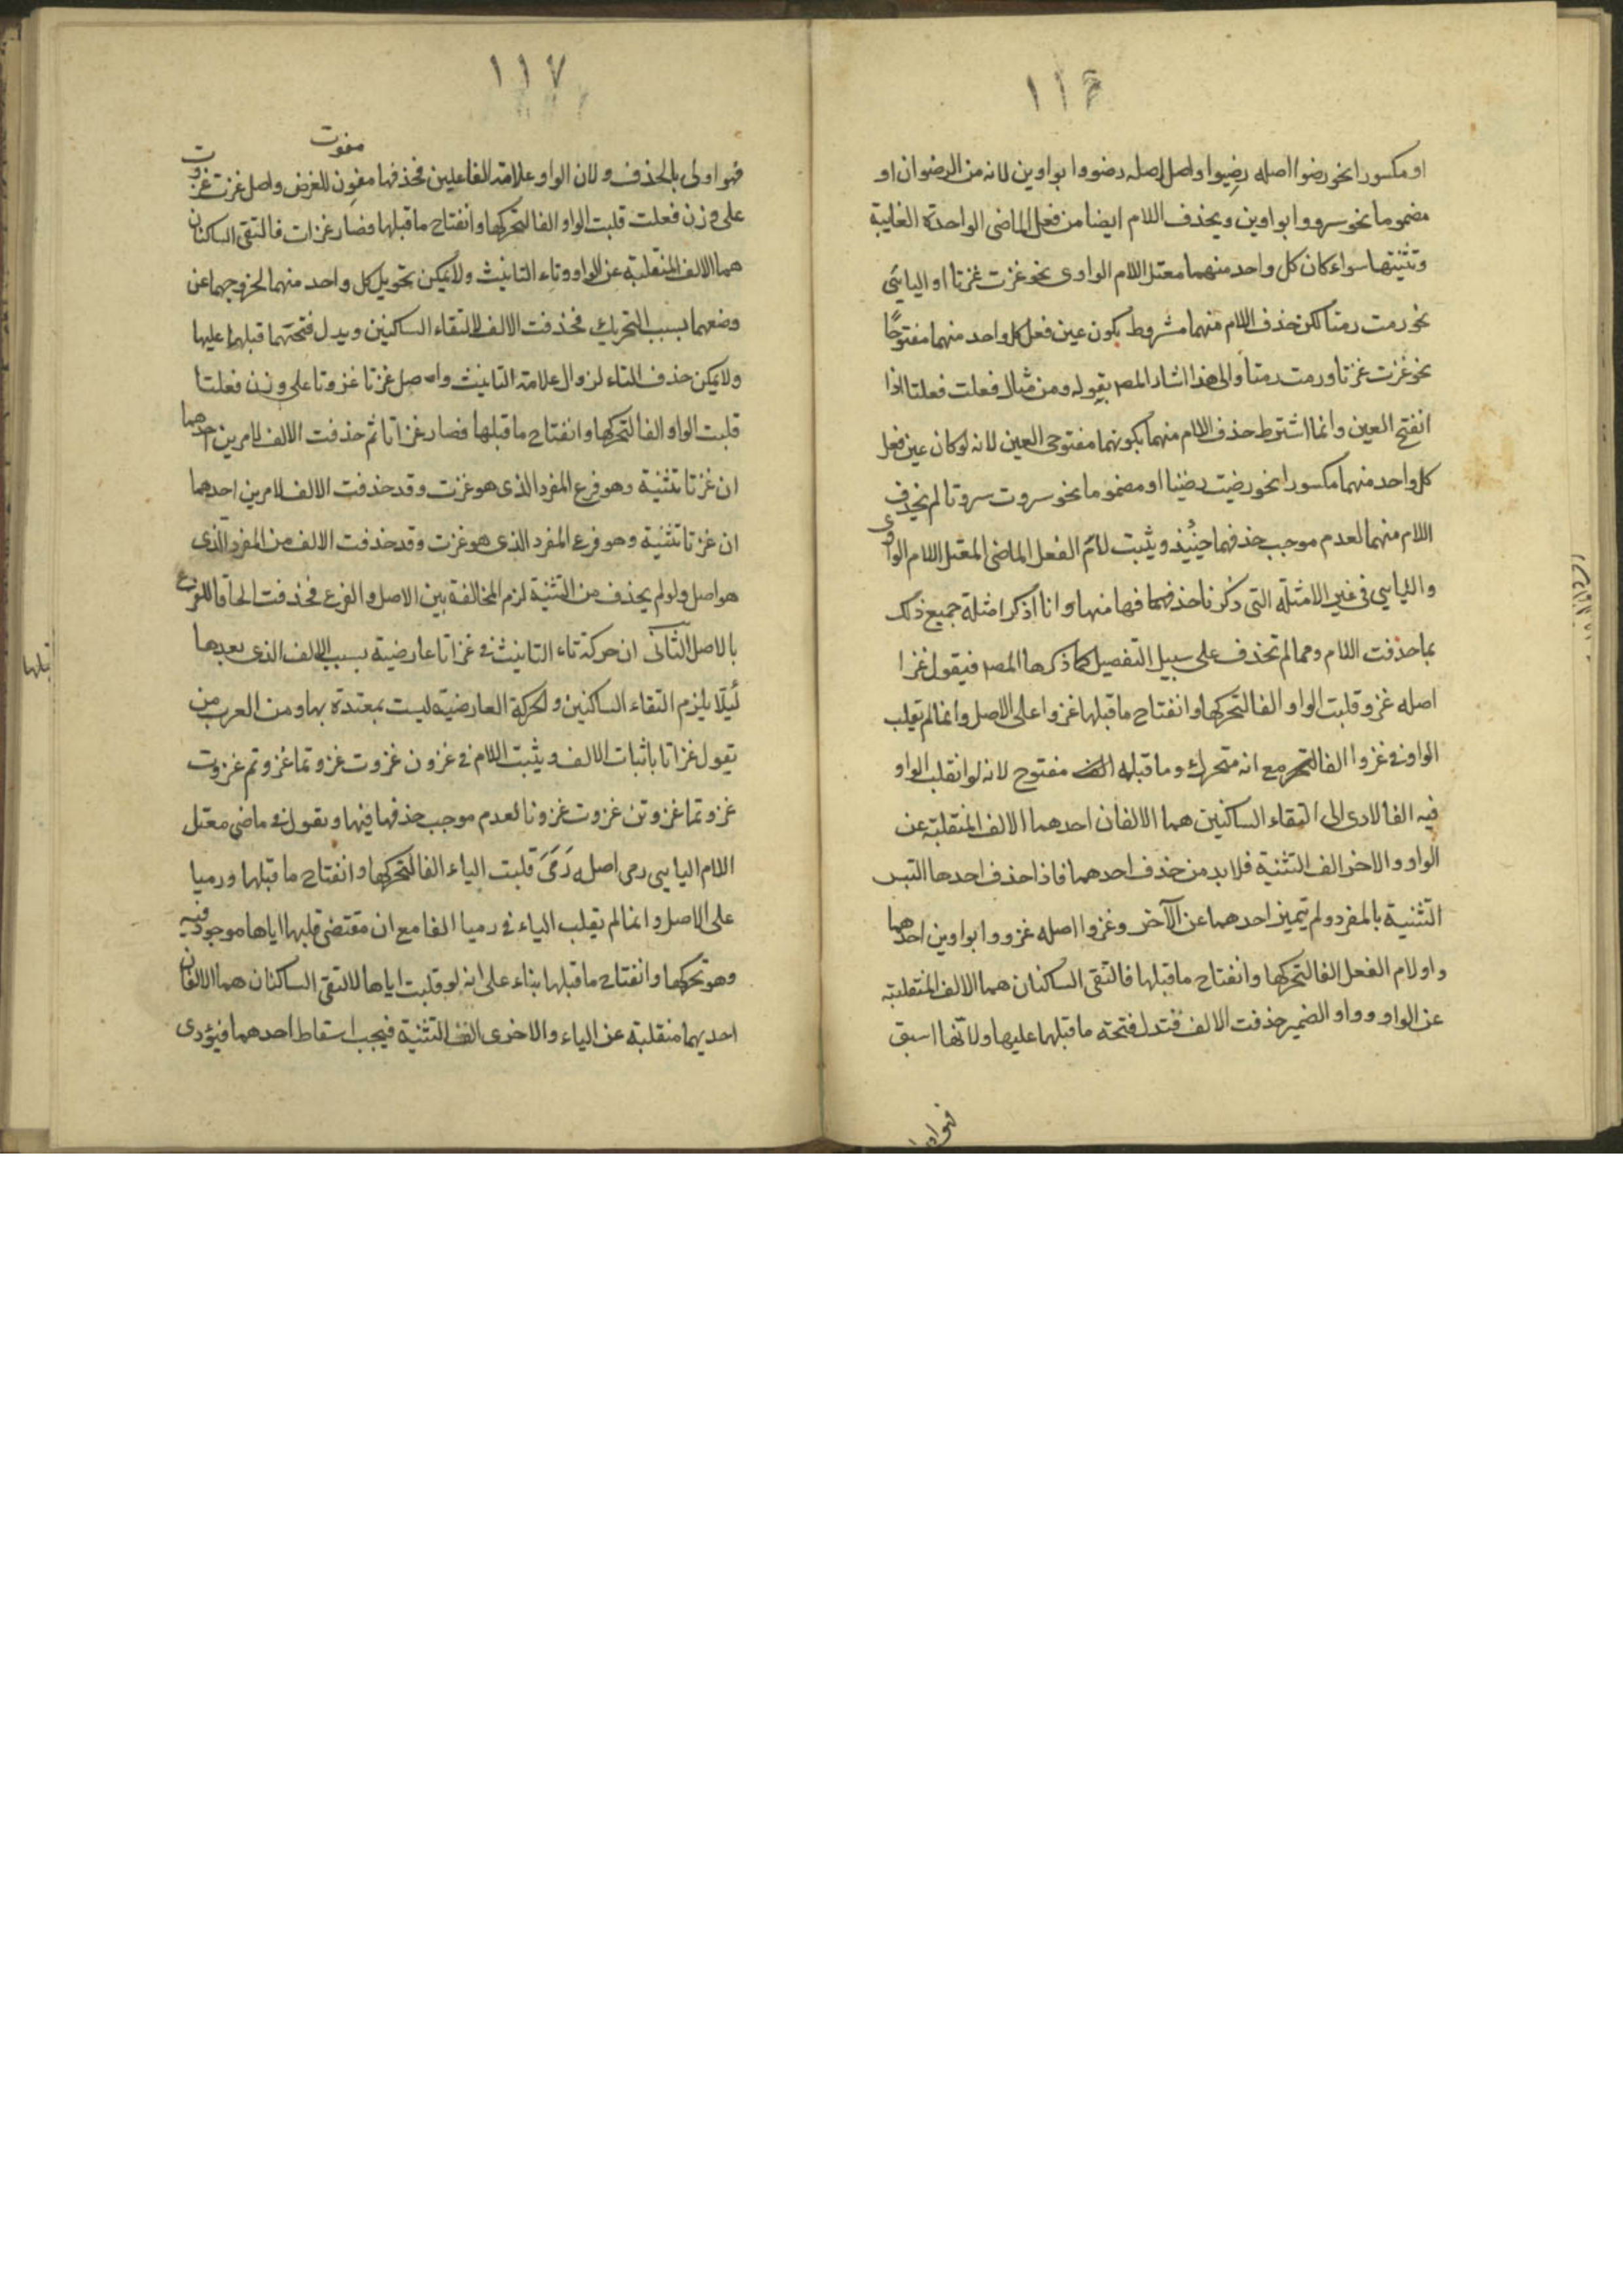 ١١٦
او مكسورا نحو رضوا اصله رضيوا واصل اصله رضووا بواوين لانه من الرضوان او
مضموما نحو سرووا بواوين ويحذف اللام ايضا من فعل الماضى الواحدة الغايبة
وتثنيتها سواء كان كل واحد منهما معتل اللام الواوى نحو غزت غزتا او اليائى
نحو رمت رمتا لكن حذف اللام منهما مشروط بكون عين فعل كل واحد منهما مفتوحًا
نحو غزت غزتا ورمت رمتا والى هذا اشار المص بقوله ومن مثال فعلت فعلتا اذا
انفتح العين وانما اشترط حذف اللام منهما بكونهما مفتوحى العين لانه لو كان عين فعل
كل واحد منهما مكسورا نحو رضيت رضيتا او مضموما نحو سروت سروتا لم يحذف
اللام منهما لعدم موجب حذفهما حينئذ ويثبت لام الفعل الماضى المعتل اللام الواوى
واليائى فى غير الامثلة التى ذكرنا حذفهما فيها منها وانا اذكر امثلة جميع ذلك
بما حذفت اللام ومما لم تحذف على سبيل التفصيل كما ذكرها المص فنقول غزا
اصله غزو قلبت الواو الفا لتحركها وانفتاح ما قبلها غزوا على الاصل وانما لم تقلب
الواو فى غزوا الفا مع انه متحرك وما قبله مفتوح لانه لو انقلب الواو
فيه الفا لادى الى التقاء الساكنين هما الالفان احدهما الالف المنقلبة عن
الواو والاخر الف التثنية فلا بد من حذف احدهما فاذا حذف احدها التبس
التثنية بالمفرد ولم يتميز احدهما عن الآخر وغزوا اصله غزووا بواوين احدهما
واو لام الفعل الفا لتحركها وانفتاح ما قبلها فالتقى الساكنان هما الالف المنقلبة
عن الواو وواو الضمير حذفت الالف فتدل فتحة ما قبلها عليها ولانها اسبق
١١٧
مفوت
فهو اولى بالحذف ولان الواو علامة الفاعلين فحذفها مفوت للغرض واصل غزت غزوت
على وزن فعلت قلبت الواو الفا لتحركها وانفتاح ما قبلها فصار غزات فالتقى الساكنان
هما الالف المنقلبة عن الواو وتاء التانيث ولا يمكن تحويل كل واحد منهما لخروجهما عن
وضعهما بسبب التحريك فحذفت الالف لالتقاء الساكنين ويدل فتحتهما قبلها عليها
ولا يمكن حذف التاء لزوال علامة التانيث واصل غزتا غزوتا على وزن فعلتا
قلبت الواو الفا لتحركها وانفتاح ما قبلها فصار غزاتا ثم حذفت الالف لامرين احدهما
ان غزتا تثنية وهو فرع المفرد الذى هو غزت وقد حذفت الالف لامرين احدهما
ان غزتا تثنية وهو فرع المفرد الذى هو غزت وقد حذفت الالف من المفرد الذى
هو اصل ولو لم يحذف من التثنية لزم المخالفة بين الاصل والفرع فحذفت الحاقا للفرع
بالاصل الثانى ان حركة تاء التانيث فى غزاتا عارضية بسبب الالف الذى بعدها
لئلا يلزم التقاء الساكنين والحركة العارضية ليست بمعتدة بها ومن العرب من
يقول غزاتا باثبات الالف ويثبت اللام فى غزون غزوت غزوتما غزوتم غزوت
غزوتما غزوتن غزوت غزونا لعدم موجب حذفها فيها ونقول فى ماضى معتل
اللام اليائى رمى اصله رَمَىَ قلبت الياء الفا لتحركها وانفتاح ما قبلها ورميا
على الاصل وانما لم يقلب الياء فى رميا الفا مع ان مقتضى قلبها اياها موجود فيه
وهو تحركها وانفتاح ما قبلها بناء على انه لو قلبت اياها لالتقى الساكنان هما الالفان
احديهما منقلبة عن الياء والاخرى الف التثنية فيجب اسقاط احدهما فيؤدى